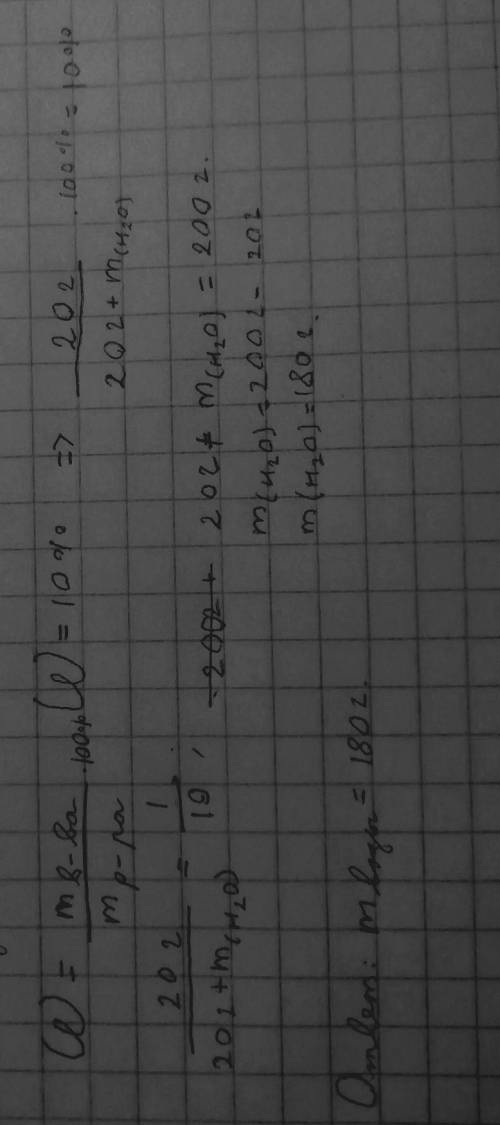 ω = m в-ва / m р-ра · 100% (ω) = 10% => 20г / 20г + m(H₂O) · 100% = 10%
20г / 20г + m(H₂O) = 1/10, 20г + m(H₂O) = 200г.
m(H₂O) = 200г - 20г
m(H₂O) = 180г.
Ответ: m воды = 180г.